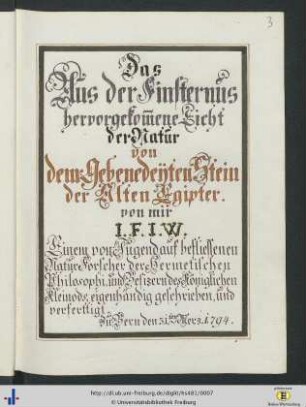 3
Das
Aus der Finsternüs
hervorgekom̄ene Licht
der Natur
von
dem Gebenedeÿten Stein
der Alten Egipter.
von mir
I. F. I. W.
Einem von Jugend auf beflissenen
Natur Forscher der Hermetischen
Philosophi, und Besizern des Königlichen
Kleinods, eigenhändig geschrieben, und
verfertigt
Bern den 31. Merz. 1794.
http://dl.ub.uni-freiburg.de/diglit/hs481/0007
© Universitätsbibliothek Freiburg